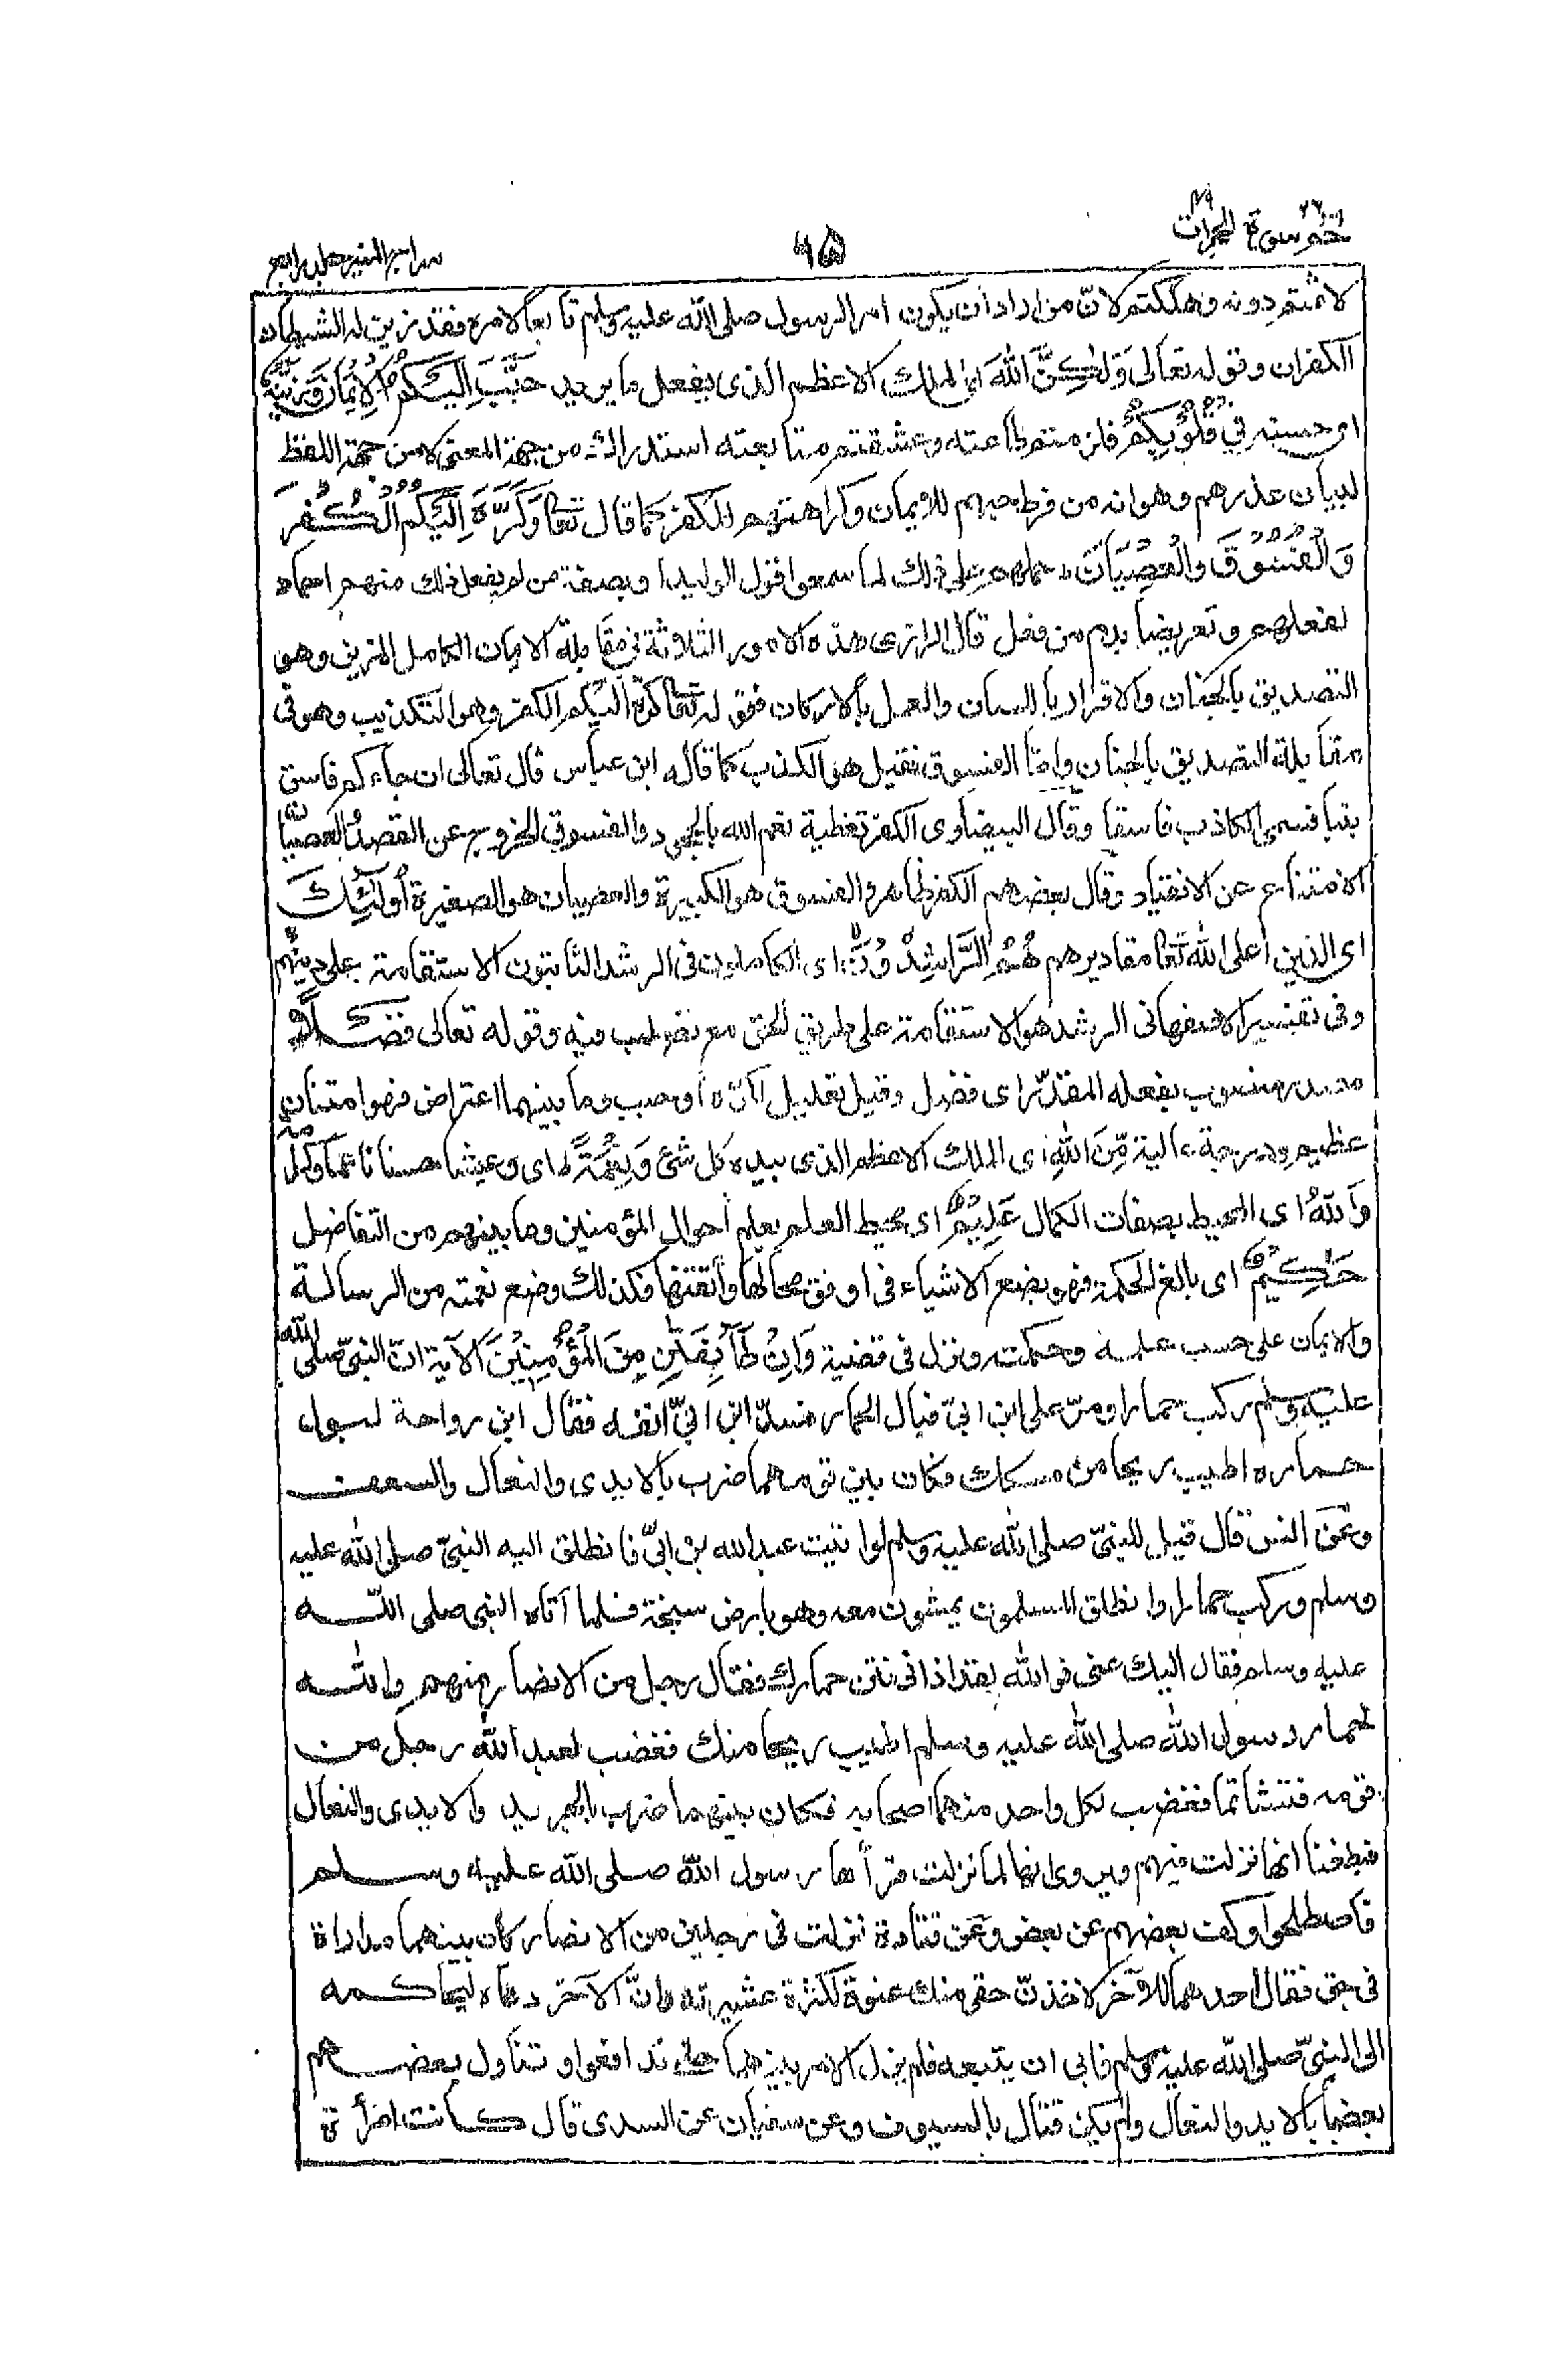 حٰمٓ ٢٦ سورة الحجرات ٤٩
٦٥
سراج المنير جلد رابع
لاثمتم دونه وهلكتم لانّ من اراد ان يكون امر الرسول صلى الله عليه وسلم تابعا لامره فقد زين له الشيطان
الكفران وقوله تعالى وَلٰكِنَّ اللّٰهَ اى الملك الاعظم الذى يفعل ما يريد حَبَّبَ اِلَيْكُمُ الْاِيْمَانَ وَزَيَّنَهٗ
اى حسنه فِيْ قُلُوْبِكُمْ فلزمتم طاعته وعشقتم متابعته استدراك من جهة المعنى لا من جهة اللفظ
لبيان عذرهم وهو انه من فرط حبهم للايمان وكراهتهم للكفر كما قال تعالى وَكَرَّهَ اِلَيْكُمُ الْكُفْرَ
وَالْفُسُوْقَ وَالْعِصْيَانَ حملهم على ذلك لما سمعوا قول الوليد او بصفة من لم يفعل ذلك منهم احمادا
لفعلهم وتعريضا بذم من فعل قال الرازى هذه الامور الثلاثة فى مقابلة الايمان الكامل المزين وهو
التصديق بالجنان والاقرار باللسان والعمل بالاركان فقوله تعالى كرّه اليكم الكفر وهو التكذيب وهو فى
مقابلة التصديق بالجنان وامّا الفسوق فقيل هو الكذب كما قاله ابن عباس قال تعالى ان جاءكم فاسق
بنبا فسمى الكاذب فاسقا وقال البيضاوى الكفر تغطية نعم الله بالجحود والفسوق الخروج عن القصد والعصيان
الامتناع عن الانقياد وقال بعضهم الكفر ظاهر والفسوق هو الكبيرة والعصيان هو الصغيرة اُولٰٓئِكَ
اى الذين اعلى الله تعالى مقاديرهم هُمُ الرَّاشِدُوْنَ اى الكاملون فى الرشد الثابتون الاستقامة على دينهم
وفى تفسير الاصفهانى الرشد هو الاستقامة على طريق الحق مع تصلب فيه وقوله تعالى فَضْلًا
مصدر منصوب بفعله المقدّر اى فضل وقيل تعليل لكرّه او حبب وما بينهما اعتراض فهو امتنان
عظيم ودرجة عالية مِّنَ اللّٰهِ اى الملك الاعظم الذى بيده كل شئ وَنِعْمَةً اى وعيشا حسنا ناعما وكرامة
وَاللّٰهُ اى المحيط بصفات الكمال عَلِيْمٌ اى محيط العلم يعلم احوال المؤمنين وما بينهم من التفاضل
حَكِيْمٌ اى بالغ الحكمة فهو يضع الاشياء فى اوفق محالها واتقنها فكذلك وضع نعمته من الرسالة
والايمان على حسب علمه وحكمته ونزل فى قضية وَاِنْ طَآئِفَتٰنِ مِنَ الْمُؤْمِنِيْنَ الآية انّ النبىّ صلى الله
عليه وسلم ركب حمارا ومرّ على ابن ابىّ فبال الحمار فسدّ ابن ابىّ انفه فقال ابن رواحة لبول
حماره اطيب ريحا من مسكك فكان بين قومهما ضرب بالايدى والنعال والسعف
وعن انس قال قيل للنبىّ صلى الله عليه وسلم لو اتيت عبد الله بن ابىّ فانطلق اليه النبىّ صلى الله عليه
وسلم وركب حمارا وانطلق المسلمون يمشون معه وهو بارض سبخة فلما اتاه النبى صلى الله
عليه وسلم فقال اليك عنى فوالله لقد اذانى نتن حمارك فقال رجل من الانصار منهم والله
لحمار رسول الله صلى الله عليه وسلم اطيب ريحا منك فغضب لعبد الله رجل من
قومه فتشاتما فغضب لكل واحد منهما اصحابه فكان بينهما ضرب بالجريد والايدى والنعال
فبلغنا انها نزلت فيهم ويروى انها لما نزلت قرأها رسول الله صلى الله عليه وسلم
فاصطلحوا وكف بعضهم عن بعض وعن قتادة نزلت فى رجلين من الانصار كان بينهما مداراة
فى حق فقال احدهما للآخر لاخذنّ حقى منك عنوة لكثرة عشيرته وانّ الآخر دعاه ليحاكمه
الى النبىّ صلى الله عليه وسلم فابى ان يتبعه فلم يزل الامر بينهما حتى تدافعوا وتناول بعضهم
بعضا بالايد والنعال ولم يكن قتال بالسيوف وعن سفيان عن السدى قال كانت امرأة